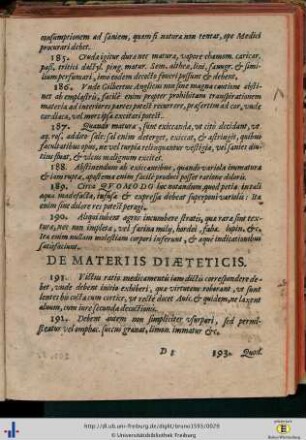 consumptionem ad saniem, quam si natura non tentat, ope Medici
procurari debet.
185. Cruda igitur dura nec matura, vapore chamom. caricar.
pass. tritici dactyl. ping. matur. Sem. althea, lini, fœnugr. & simi-
lium perfumari, imò eodem decocto foveri possunt & debent.
186. Unde Gilbertus Anglicus non sine magna cautione absti-
net ab emplastris, facilè enim propter prohibitam transpirationem
materia ad interiores partes potest recurrere, præsertim ad cor, unde
cardiaca, vel mors ipsa excitari potest.
187. Quando matura, sint exiccanda, ut citò decidant, ve
aq. ros. addito sale: sal enim detergit, exiccat, & astringit, quibus
facultatibus opus, ne vel turpia relinquantur vestigia, vel sanies diu-
tius sinat, & ulcus malignum excitet.
188. Abstinendum ab exiccantibus, quando variola immatura
& iam rupta, asperma enim facilè produci posset ratione doloris.
189. Circa QUOMODO hoc notandum, quod petia in tali
aqua madefacta, infusa & expressa debeat superponi variolis: ita
enim sine dolore res potest peragi.
190. Aliqui iubent agros incumbere stratis, qua rara sint tex-
tura, nec non impleta, vel farina milij, hordei, faba, lupin. &c.
ita enim nullam molestiam corpori inferunt, & aquè indicationibus
satisfaciunt.
DE MATERIIS DIÆTETICIS.
191. Victus ratio medicamentis iam dictis correspondere de-
bet, unde debent initio exhiberi, qua virtutem roborant, ut sunt
lentes bis cocta cum cortice, ut rectè docet Avic. & quidem, ne laxent
alvum, cum iure secunda decoctionis.
192. Debent autem non simpliciter usurpari, sed permi-
sceatur vel omphac. succus granat. limon. immatur &c.
D 1
193. Quod
http://dl.ub.uni-freiburg.de/diglit/bruno1585/0029
© Universitätsbibliothek Freiburg